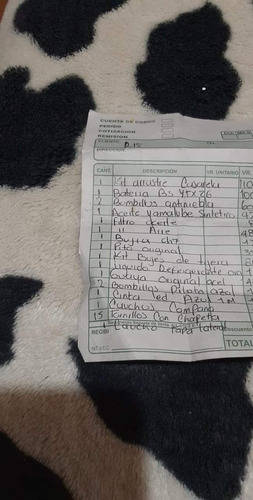 CUENTA DE COBRO
PEDIDO
COTIZACION
REMISION
CLIENTE
DIRECCION
CANT. DESCRIPCION VR. UNITARIO VR.
1 Kit arrastre
1 Bateria Bs YTX
2 Bombillos antiniebla
1 Aceite Yamalube Sintetico
1 filtro Aceite
1 " Aire
1 Bujia
1 Pito original
1 Kit Bujes de tijera
1 Liquido Refrigerante
1 Guaya original acel
2 Bombillos Piloto azul
1 Cinta led Azul 1M
Cauchos Campana
15 Tornillos Con Chapeta
1 Caucho Tapa lateral
RECIBI
TOTAL